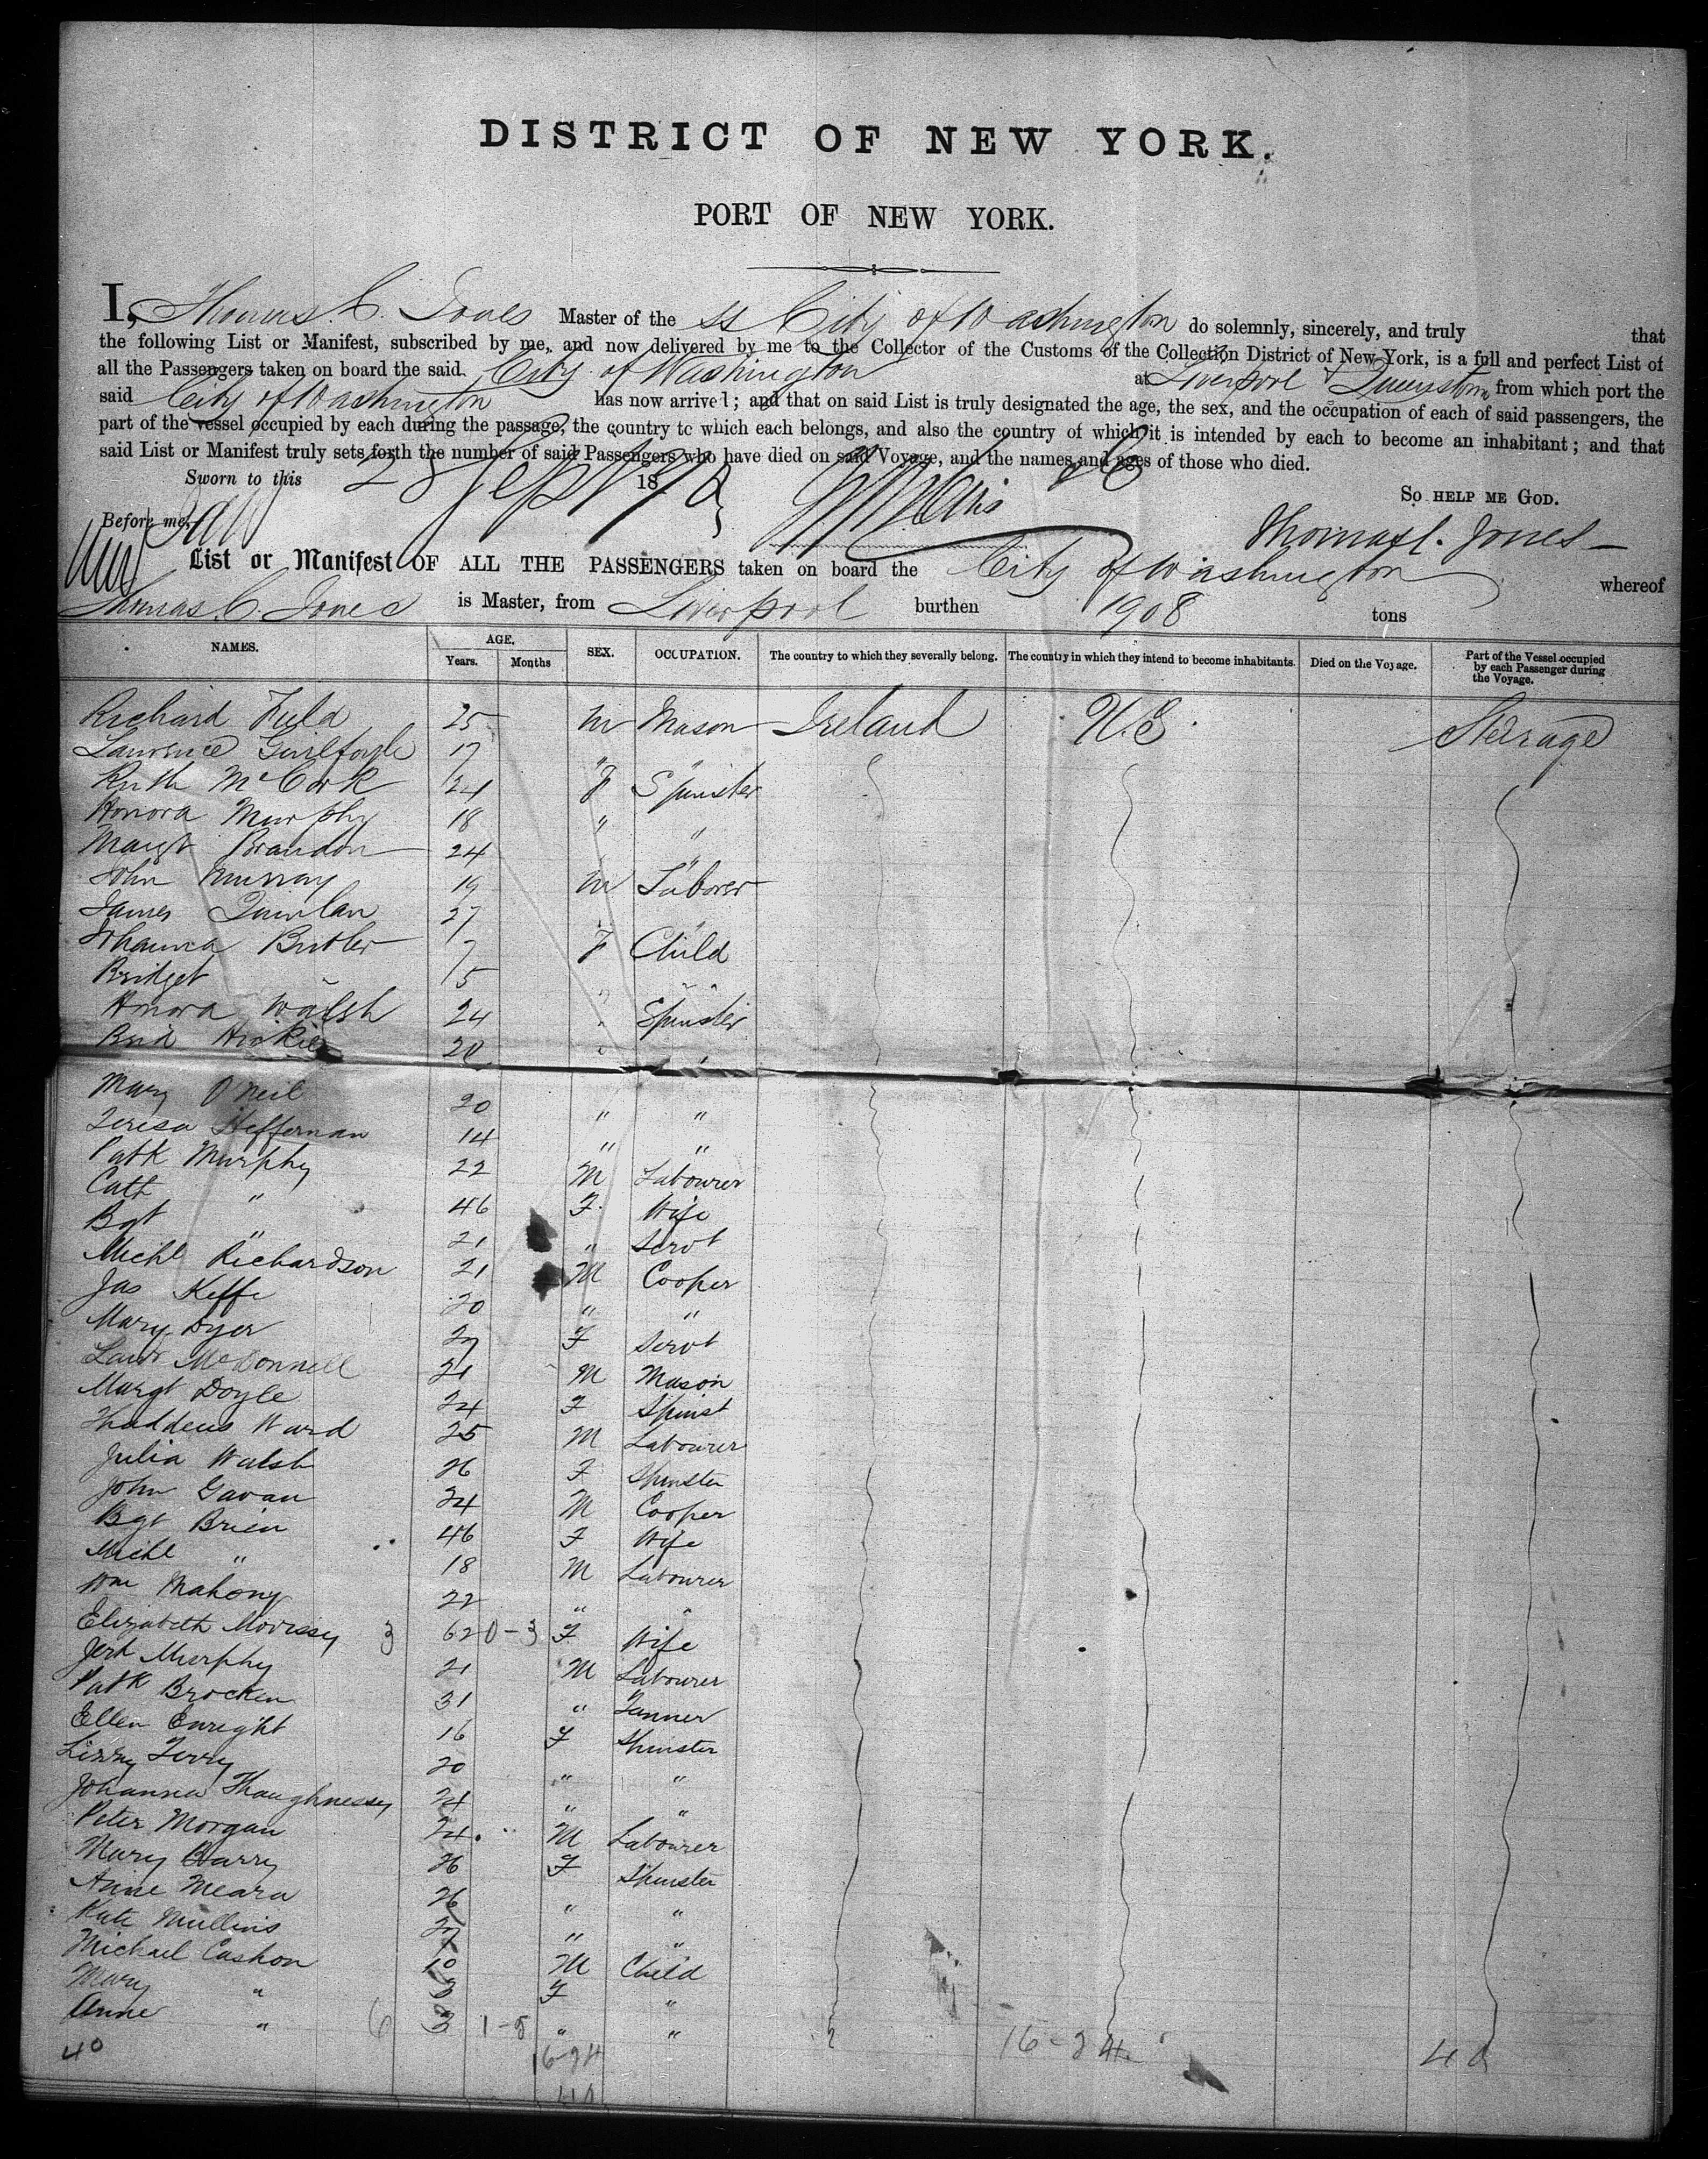 DISTRICT OF NEW YORK.
PORT OF NEW YORK.
I, Thomas C. Jones Master of the SS City of Washington do solemnly, sincerely, and truly that
the following List or Manifest, subscribed by me, and now delivered by me to the Collector of the Customs of the Collection District of New York, is a full and perfect List of
all the Passengers taken on board the said City of Washington at Liverpool & Queenstown from which port the
said City of Washington has now arrived; and that on said List is truly designated the age, the sex, and the occupation of each of said passengers, the
part of the vessel occupied by each during the passage, the country to which each belongs, and also the country of which it is intended by each to become an inhabitant; and that
said List or Manifest truly sets forth the number of said Passengers who have died on said Voyage, and the names and ages of those who died.
Sworn to this 28 Sept 18 So help me God.
Before me, Thomas C. Jones
List or Manifest OF ALL THE PASSENGERS taken on board the City of Washington whereof
Thomas C. Jones is Master, from Liverpool burthen 1908 tons
NAMES. AGE. Years. Months SEX. OCCUPATION. The country to which they severally belong. The country in which they intend to become inhabitants. Died on the Voyage. Part of the Vessel occupied by each Passenger during the Voyage.
Richard Field 25 M Mason Ireland U.S. Steerage
Lawrence Guilfoyle 17 " "
Ruth McCork 24 F Spinster
Honora Murphy 18 " "
Margt Brandon 24 "
John Murray 19 M Laborer
James Quinlan 27 "
Johanna Butler 7 F Child
Bridget " 5 " "
Honora Walsh 24 " Spinster
Brid Hickie 20 " "
Mary O'Neil 20 " "
Teresa Heffernan 14 " "
Patk Murphy 22 M Labourer
Cath " 46 F Wife
Bgt " 21 " Servt
Michl Richardson 21 M Cooper
Jas Keffe 20 " "
Mary Dyer 27 F Servt
Lawr McDonnell 21 M Mason
Margt Doyle 24 F Spinst
Thaddeus Ward 25 M Labourer
Julia Walsh 26 F Spinster
John Gavan 24 M Cooper
Bgt Brien 46 F Wife
Michl " 18 M Labourer
Wm Mahony 22 " "
Elizabeth Morrissy 3 62 0-3 F Wife
Jerh Murphy 21 M Labourer
Patk Brocken 31 " Tanner
Ellen Enright 16 F Spinster
Lizzy Terry 20 " "
Johanna Shaughnessy 24 " "
Peter Morgan 24 M Labourer
Mary Barry 26 F Spinster
Anne Meara 26 " "
Kate Mullins 27 " "
Michael Cashon 10 M Child
Mary " 3 F "
Anne " 6 3 1-8 " "
40 16-24 16-24 40
40